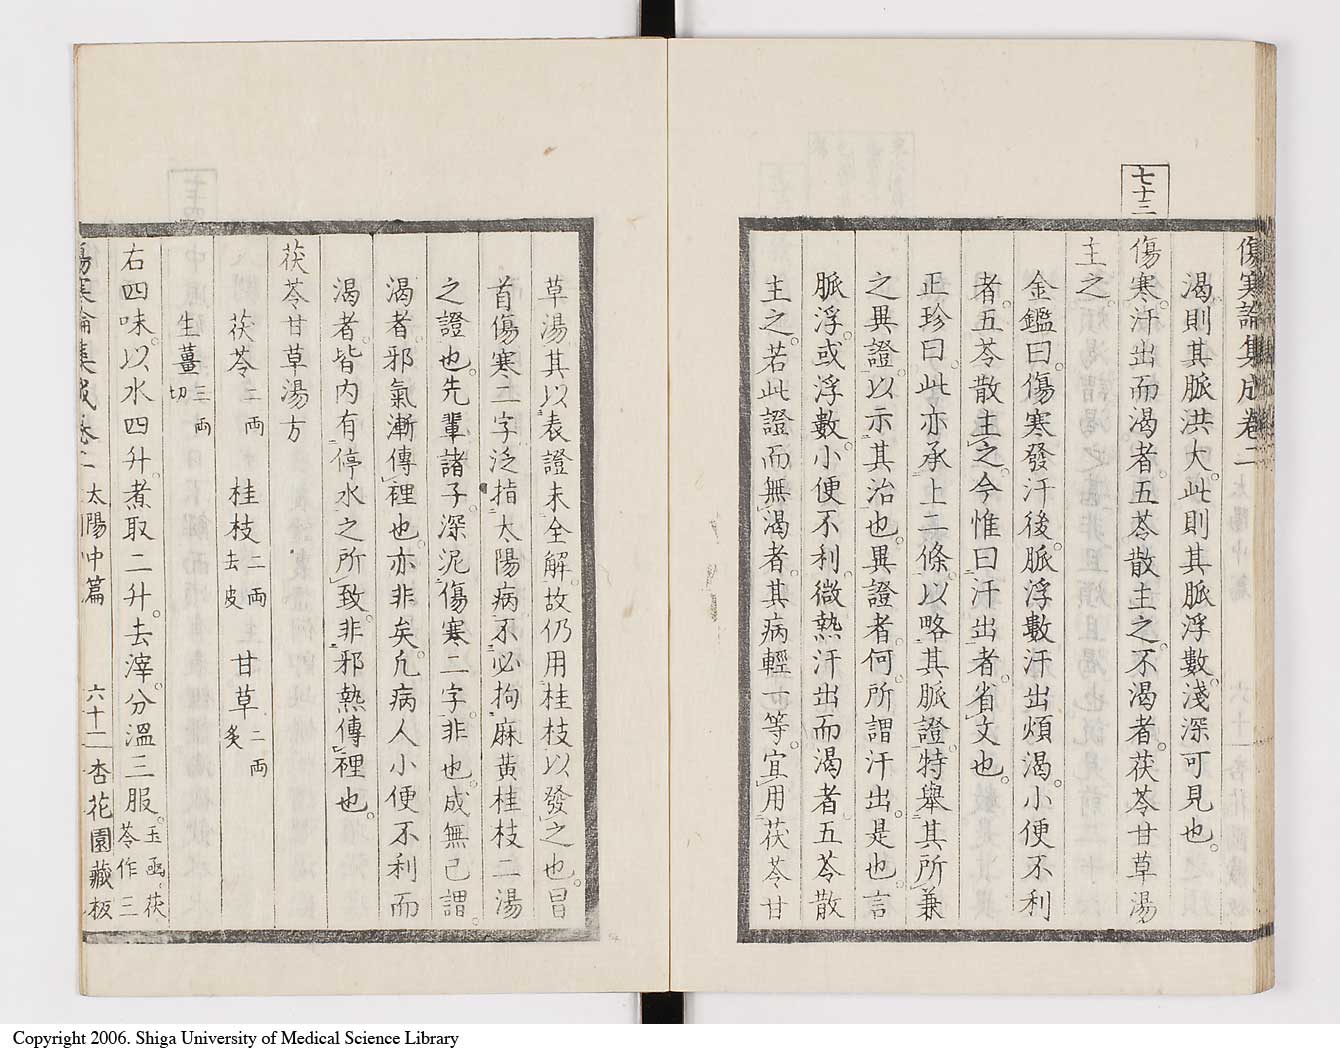 七十三
傷寒論集成卷二
渴。則其脈洪大。此則其脈浮數。淺深可見也。
傷寒。汗出而渴者。五苓散主之。不渴者。茯苓甘草湯
主之。
金鑑曰。傷寒發汗後。脈浮數汗出煩渴。小便不利
者。五苓散主之。今惟曰汗出者。省文也。
正珍曰。此亦承上二條。以略其脈證。特舉其所兼
之異證。以示其治也。異證者。何。所謂汗出。是也。言
脈浮。或浮數。小便不利。微熱汗出而渴者五苓散
主之。若此證而無渴者。其病輕一等。宜用茯苓甘
草湯其以表證未全解。故仍用桂枝以發之也。冒
首傷寒二字。泛指太陽病。不必拘麻黃桂枝二湯
之證也。先輩諸子。深泥傷寒二字。非也。成無己謂。
渴者。邪氣漸傳裡也。亦非矣。凡病人小便不利而
渴者。皆內有停水之所致。非邪熱傳裡也。
茯苓甘草湯方
茯苓二兩 桂枝二兩去皮 甘草二兩炙
生薑三兩切
右四味。以水四升。煮取二升。去滓。分溫三服。玉函、茯苓作三
傷寒論集成卷二 太陽中篇 六十二 杏花園藏板
Copyright 2006. Shiga University of Medical Science Library